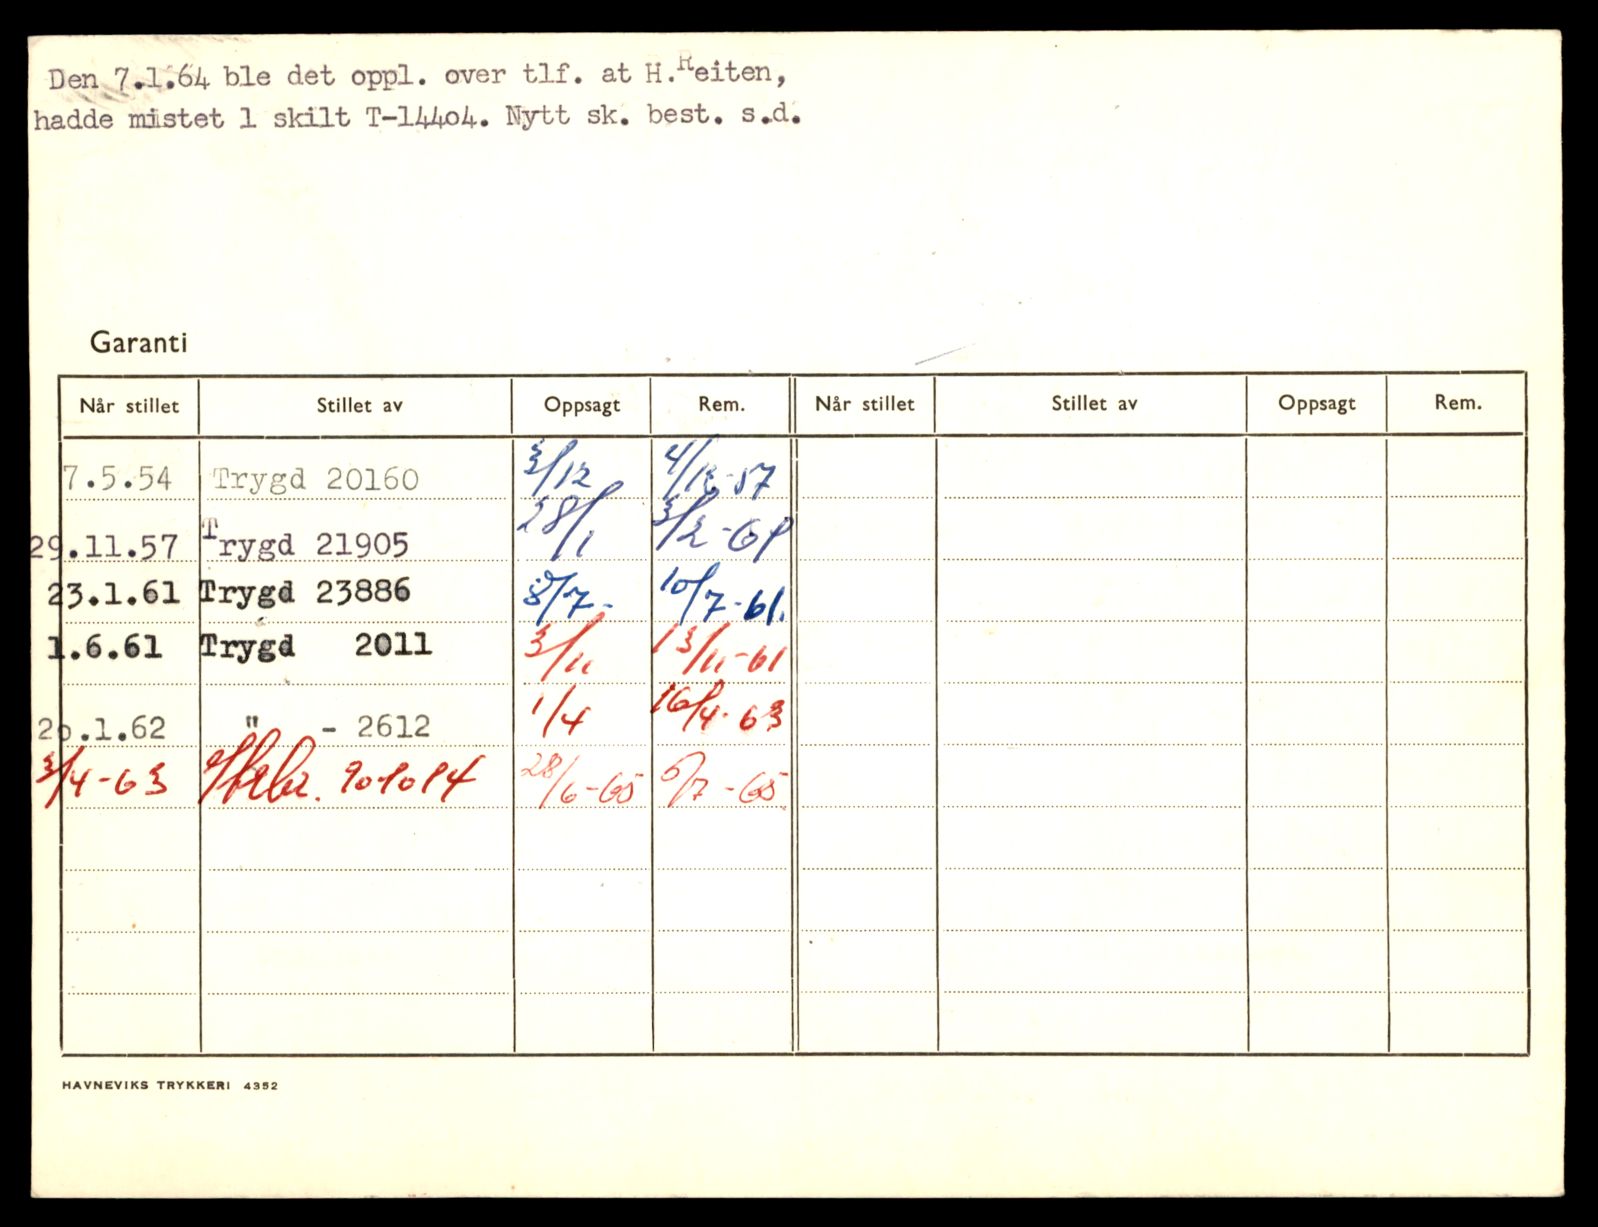 Den 7.1.64 ble det oppl. over tlf. at H.Reiten,
hadde mistet 1 skilt T-14404. Nytt sk. best. s.d.
Garanti
Når stillet Stillet av Oppsagt Rem. Når stillet Stillet av Oppsagt Rem.
7.5.54 Trygd 20160 3/12 4/12-57
29.11.57 Trygd 21905 28/1 3/2-61
23.1.61 Trygd 23886 8/7- 10/7-61.
1.6.61 Trygd 2011 3/11 13/11-61
.1.62 " - 2612 1/4 16/4-63
3/4-63 28/6-65 5/7-65
HAVNEVIKS TRYKKERI 4352